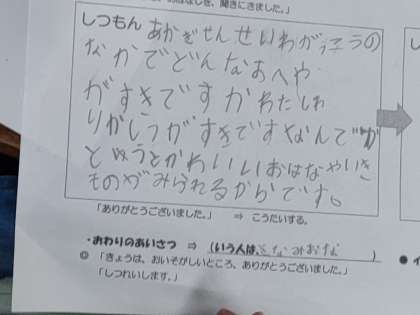 聞きにきました。」
しつもん あかぎせんせいわがっこうの
なかでどんなおへや
がすきですか わたしわ
りかしつがすきですなんでか
というとかわいいおはなやいき
ものがみられるからです。
「ありがとうございました。」 ⇒ こうたいする。
・おわりのあいさつ ⇒ (いう人は、 )
◎ 「きょうは、おいそがしいところ、ありがとうございました。」
「しつれいします。」